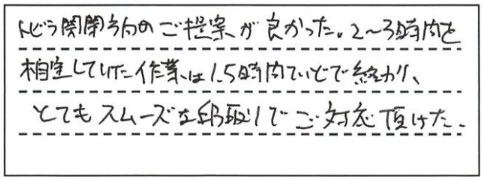 トビラ開閉方向のご提案が良かった。2～3時間を
想定していた作業は1.5時間ていどで終わり、
とてもスムーズな段取りでご対応頂けた。